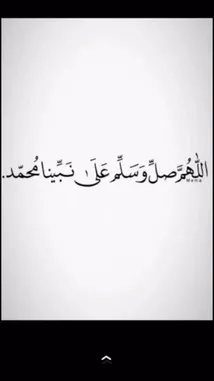 اللَّهُمَّ صلِّ وَسَلِّم عَلَى نَبِّينا مُحمّد.